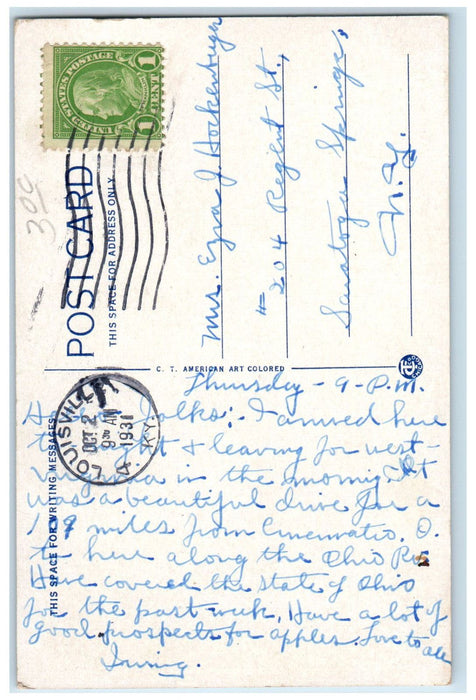 UNITED STATES POSTAGE
1 CENT 1
300
POST CARD
THIS SPACE FOR ADDRESS ONLY
Mrs. Ezra J Hockenburgh
204 Regent St.,
Saratoga Springs,
N.Y.
C. T. AMERICAN ART COLORED
LOUISVILLE
OCT 2
9 30 AM
1931
KY.
THIS SPACE FOR WRITING MESSAGES
Thursday - 9 - P.M.
Folks: I arrived here
& leaving for west-
in the morning. It
was a beautiful drive for a
miles from Cincinnatio, O.
to here along the Ohio
Have covered the state of Ohio
for the past week. Have a lot of
good prospects for apples. Love to all
Irving.